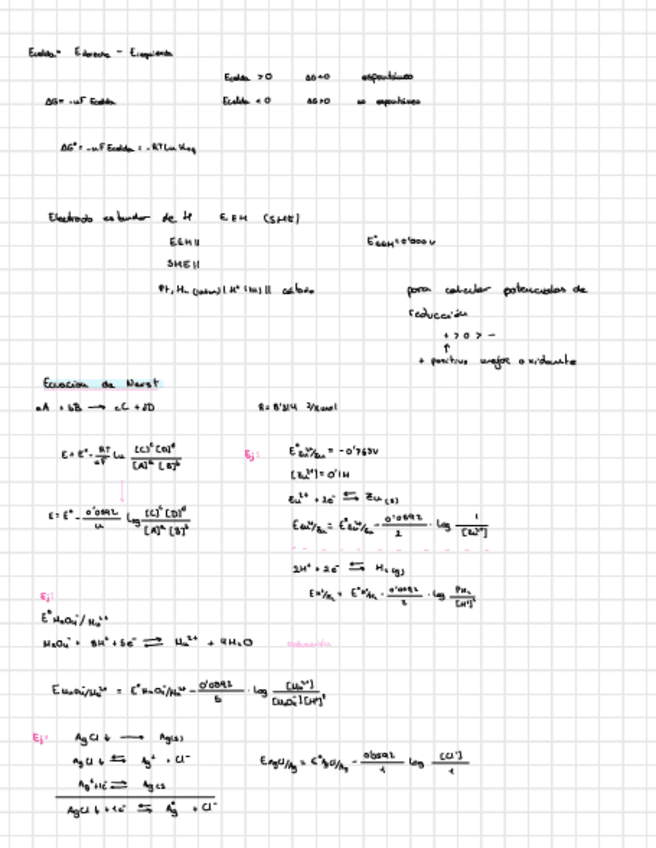 Ecelda = Ederecha - Eizquierda
Ecelda > 0 ΔG<0 espontáneo
ΔG = -nF Ecelda Ecelda < 0 ΔG>0 no espontáneo
ΔG° = -nF Ecelda = -RT Ln Keq
Electrodo estandar de H EEH (SHE)
EEH ||
E°EEH = 0'000 V
SHE ||
Pt, H₂ (1atm) | H⁺ (1M) || cátodo
para calcular potenciales de
reducción
+ > 0 > -
↑
+ positivo mejor oxidante
Ecuación de Nerst
aA + bB → cC + dD R = 8'314 J/K mol
E = E° - RT/nF Ln [C]ᶜ [D]ᵈ / [A]ᵃ [B]ᵇ
E = E° - 0'0592/n log [C]ᶜ [D]ᵈ / [A]ᵃ [B]ᵇ
Ej: E°Zn²⁺/Zn = -0'763V
[Zn²⁺] = 0'1M
Zn²⁺ + 2e⁻ ⇆ Zn (s)
EZn²⁺/Zn = E°Zn²⁺/Zn - 0'0592/2 · log 1/[Zn²⁺]
2H⁺ + 2e⁻ ⇆ H₂ (g)
EH⁺/H₂ = E°H⁺/H₂ - 0'0592/2 · log PH₂/[H⁺]²
Ej:
E° MnO₄⁻/Mn²⁺
MnO₄⁻ + 8H⁺ + 5e⁻ ⇄ Mn²⁺ + 4H₂O reducción
EMnO₄⁻/Mn²⁺ = E°MnO₄⁻/Mn²⁺ - 0'0592/5 · log [Mn²⁺]/[MnO₄⁻][H⁺]⁸
Ej: AgCl ↓ → Ag(s)
AgCl ↓ ⇆ Ag⁺ + Cl⁻
EAgCl/Ag = E°AgCl/Ag - 0'0592/1 log [Cl⁻]/1
Ag⁺ + 1e⁻ ⇄ Ag(s)
AgCl ↓ + 1e⁻ ⇆ Ag° + Cl⁻